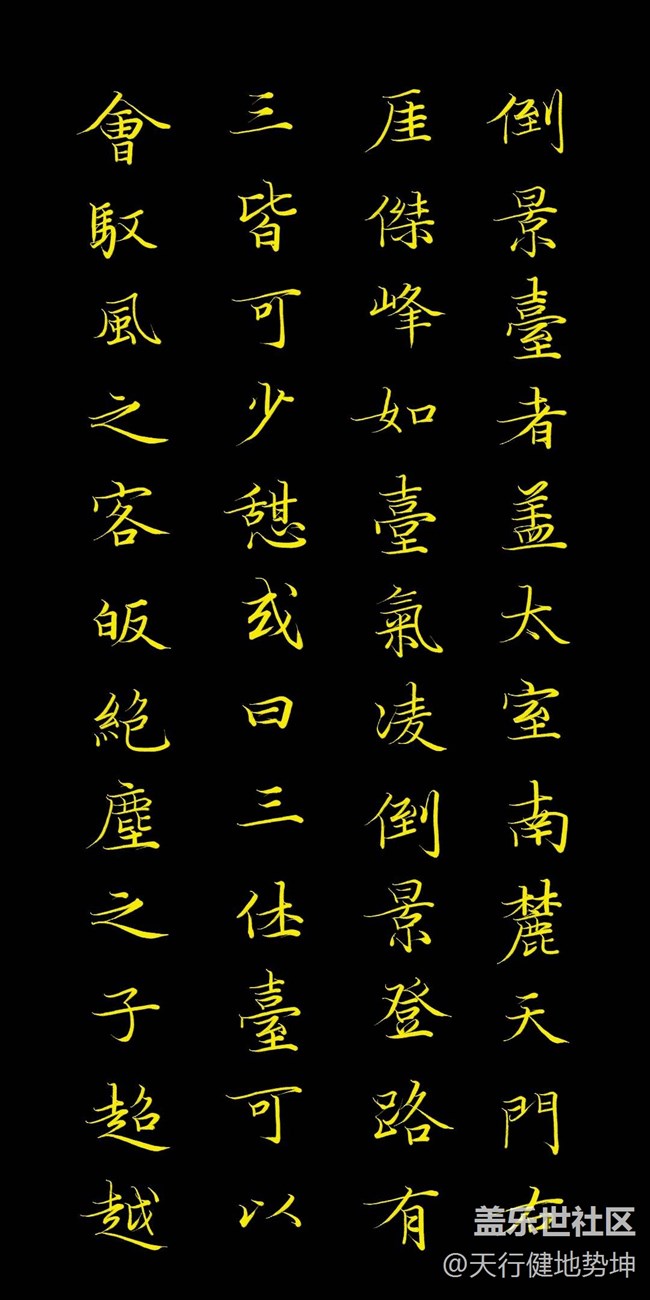 倒景臺者盖太室南麓天門右
厓傑峰如臺氣凌倒景登路有
三皆可少憇或曰三休臺可以
會馭風之客皈絶塵之子超越
盖乐世社区
@天行健地势坤